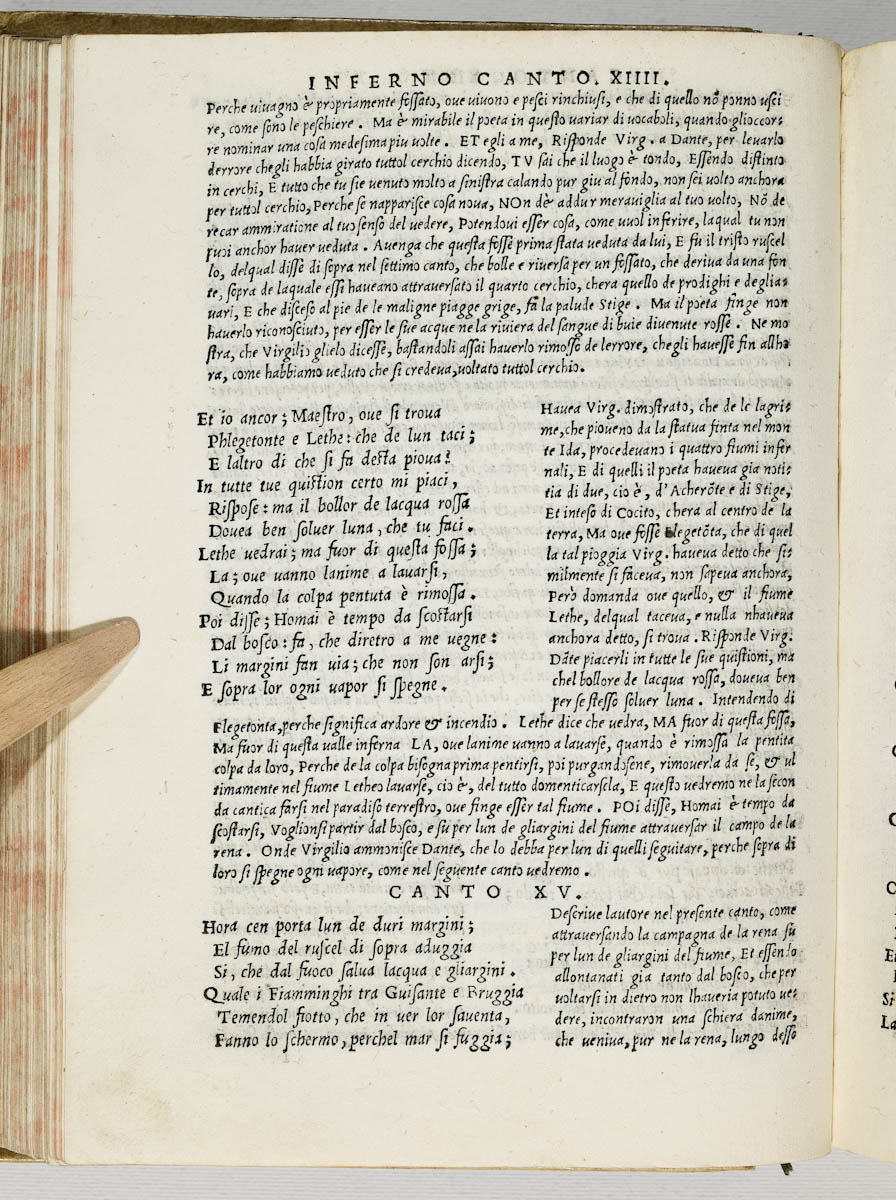 INFERNO CANTO. XIIII.
Perche vivagno è propriamente fossato, ove vivono e pesci rinchiusi, e che di quello nō ponno usci
re, come sono le peschiere. Ma è mirabile il poeta in questo variar di vocaboli, quando glioccor-
re nominar una cosa medesima piu volte. ET egli a me, Risponde Virg. a Dante, per levarlo
derrore chegli habbia girato tuttol cerchio dicendo, TV sai che il luogo è tondo, Essendo distinto
in cerchi, E tutto che tu sie venuto molto a sinistra calando pur giu al fondo, non sei volto anchora
per tuttol cerchio, Perche se napparisce cosa nova, NOn dè addur meraviglia al tuo volto, Nō de
recar ammiratione al tuo senso del vedere, Potendovi esser cosa, come vuol inferire, laqual tu non
puoi anchor haver veduta. Avenga che questa fosse prima stata veduta da lui, E fu il tristo ruscel
lo, delqual disse di sopra nel settimo canto, che bolle e riversa per un fossato, che deriva da una fon
te, sopra de laquale essi haveano attraversato il quarto cerchio, chera quello de prodighi e degli a-
vari, E che disceso al pie de le maligne piagge grige, fa la palude Stige. Ma il poeta finge non
haverlo riconosciuto, per esser le sue acque ne la riviera del sangue di buie divenute rosse. Ne mo
stra, che Virgilio glielo dicesse, bastandoli assai haverlo rimosso de lerrore, chegli havesse fin allho
ra, come habbiamo veduto che si credeva, voltato tuttol cerchio.
Et io ancor; Maestro, ove si trova
Phlegetonte e Lethe: che de lun taci;
E laltro di che si fa desta piova?
In tutte tue quistion certo mi piaci,
Rispose: ma il bollor de lacqua rossa
Dovea ben solver luna, che tu faci.
Lethe vedrai; ma fuor di questa fossa;
La; ove vanno lanime a lavarsi,
Quando la colpa pentuta è rimossa.
Poi disse; Homai è tempo da scostarsi
Dal bosco: fa, che diretro a me vegne:
Li margini fan via; che non son arsi;
E sopra lor ogni vapor si spegne.
Havea Virg. dimostrato, che de le lagri-
me, che pioveno da la statua finta nel mon
te Ida, procedevano i quattro fiumi infer
nali, E di quelli il poeta haveva gia noti-
tia di due, cio è, d'Acherōte e di Stige,
Et inteso di Cocito, chera al centro de la
terra, Ma ove fosse Flegetōta, che di quel
la tal pioggia Virg. haveva detto che si-
milmente si faceva, non sapeva anchora,
Però domanda ove quello, & il fiume
Lethe, delqual taceva, e nulla nhaveva
anchora detto, si trova. Risponde Virg.
Dāte piacerli in tutte le sue quistioni, ma
chel bollore de lacqua rossa, doveva ben
per se stesso solver luna. Intendendo di
Flegetonta, perche significa ardore & incendio. Lethe dice che vedra, MA fuor di questa fossa,
Ma fuor di questa valle inferna LA, ove lanime vanno a lavarse, quando è rimossa la pentita
colpa da loro, Perche de la colpa bisogna prima pentirsi, poi purgandosene, rimoverla da se, & ul
timamente nel fiume Letheo lavarse, cio è, del tutto domenticarsela, E questo vedremo ne la secon
da cantica farsi nel paradiso terrestro, ove finge esser tal fiume. POi disse, Homai è tempo da
scostarsi, Voglionsi partir dal bosco, e su per lun de gliargini del fiume attraversar il campo de la
rena. Onde Virgilio ammonisce Dante, che lo debba per lun di quelli seguitare, perche sopra di
loro si spegne ogni vapore, come nel seguente canto vedremo.
CANTO XV.
Hora cen porta lun de duri margini;
El fumo del ruscel di sopra aduggia
Si, che dal fuoco salva lacqua e gliargini.
Quale i Fiamminghi tra Guisante e Bruggia
Temendol fiotto, che in ver lor saventa,
Fanno lo schermo, perchel mar si fuggia;
Descrive lautore nel presente canto, come
attraversando la campagna de la rena su
per lun de gliargini del fiume, Et essendo
allontanati gia tanto dal bosco, che per
voltarsi in dietro non lhaveria potuto ve-
dere, incontraron una schiera danime,
che veniva, pur ne la rena, lungo desso